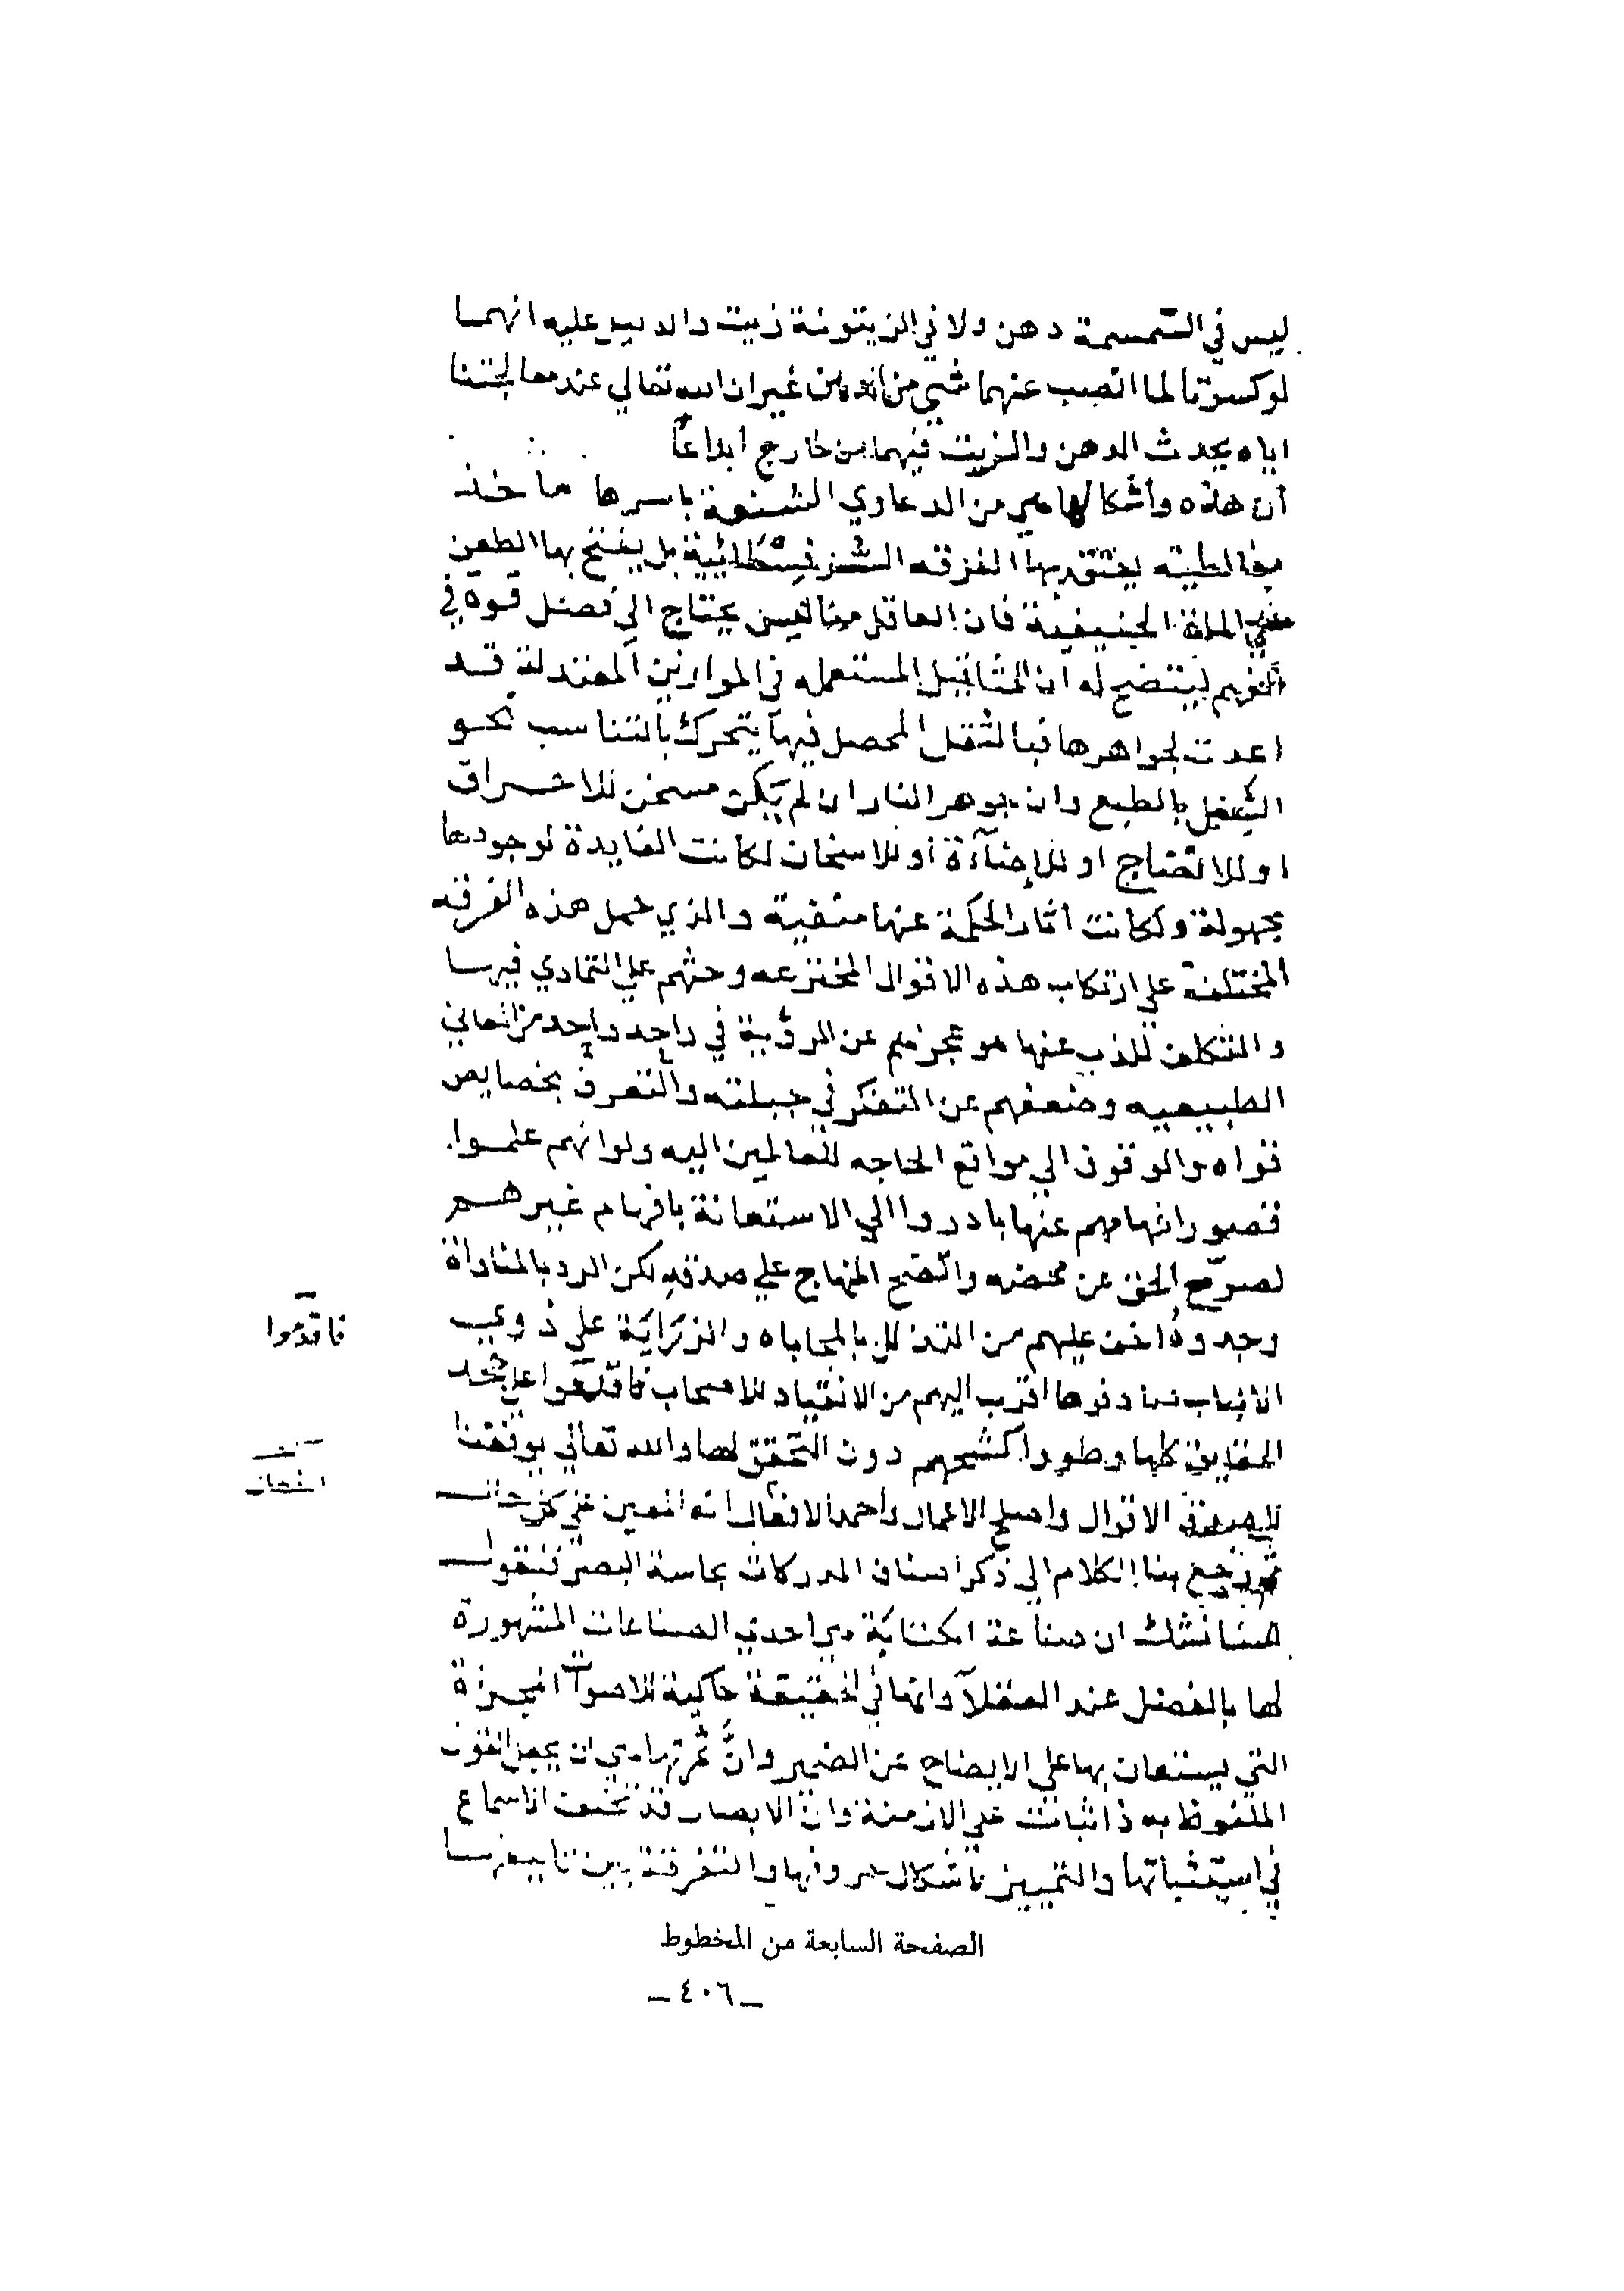 ليس في السمسمة دهن ولا في الزيتونة زيت والدليل عليه انهما
لو كسرتا لما انصب عنهما شي من غير ان الله تعالي عند معالجتنا
اياه يحدث الدهن والزيت فيهما من خارج ابداعًا
أن هذه وأشكالها هي من الدعاوي الشنعة باسرها مأخذ
مغالطيه بها الفرقه بل يفتتح بها الطعن
علي الملة الحنيفية فان العاقل منا ليس يحتاج الي فضل قوة في
الفهم ليتضح له ان المثاقيل المستعمله في الموازين المعتدلة قد
اعدت لجواهرها فبالثقل المحصل فيها يتحرك بالتناسب نحو
السفل بالطبع وان جوهر النار ان لم يكن مسخن للاشراق
او للانضاج او للإضآءة او للاسخان لكانت الفايدة لوجودها
مجهولة ولكانت اثار الحكمة عنها منفية والذي حمل هذه الفرقه
المختلفة علي ارتكاب هذه الاقوال المخترعه وحثهم علي التمادي فيها
والتكلف للذب عنها هو عجزهم عن الروية في واحد واحد من المعاني
الطبيعيه وضعفهم عن التفكر في جبلته والتعرف بخصايص
قواه والوقوف الي مواقع الحاجه للعالمين اليه ولو انهم علموا
قصور افهامهم عنها بادروا الي الاستعانة بافهام غيرهم
لصرّح الحق عن محضه واتضح المنهاج علي صدقه لكن الرد بالمناداة
وجدوه اخف عليهم من التذلل بالمحاباه والزراية علي ذوي
الالباب صادفوها اقرب اليهم من الانقياد للاصحاب فاقدموا علي جحد
الحقايق كلها وطووا كشحهم دون التحقق لها والله تعالي يوفقنا
لاصدق الاقوال واصلح الاعمال واحمد الافعال انه المعين علي كل حال
ثم رجع بنا الكلام الي ذكر اصناف المدركات بحاسة البصر فنقول
لسنا نشك ان صناعة الكتابة هي احدي الصناعات المشهورة
لها بالفضل عند العقلآ وانها في الحقيقة حاكية للاصوات المجزة
التي يستعان بها علي الايضاح عن الضمير وانّ ثمرتها هي ان يجعل القول
الملفوظ به ذا ثبات علي الازمنة وان الابصار قد تخلف الاسماع
في استثباتها والتمييز باشكال حروفها والتفرقة بين تاليفها
فاقدموا
الصفحة السابعة من المخطوط
– ٤٠٦ –